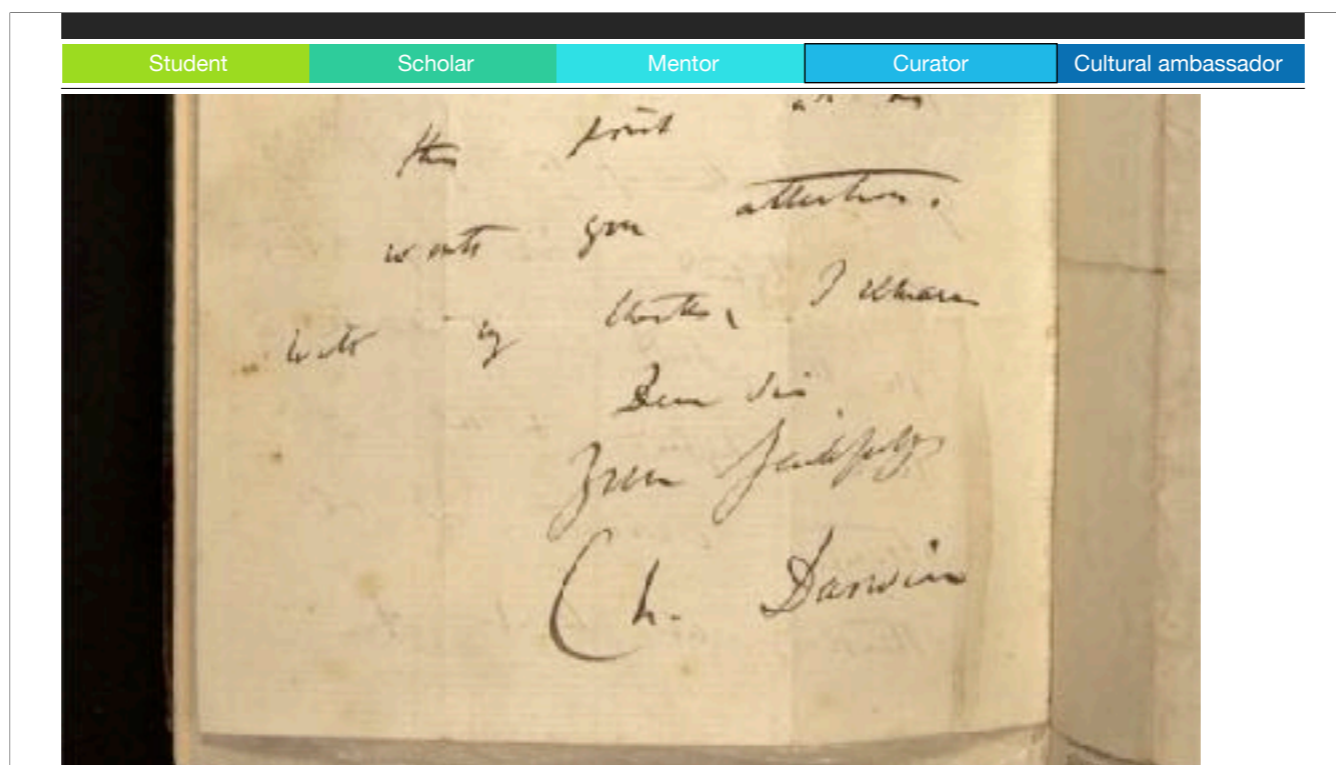 Student Scholar Mentor Curator Cultural ambassador
this point
worth your attention.
with my thanks, I remain
Dear Sir
Yours faithfully
Ch. Darwin